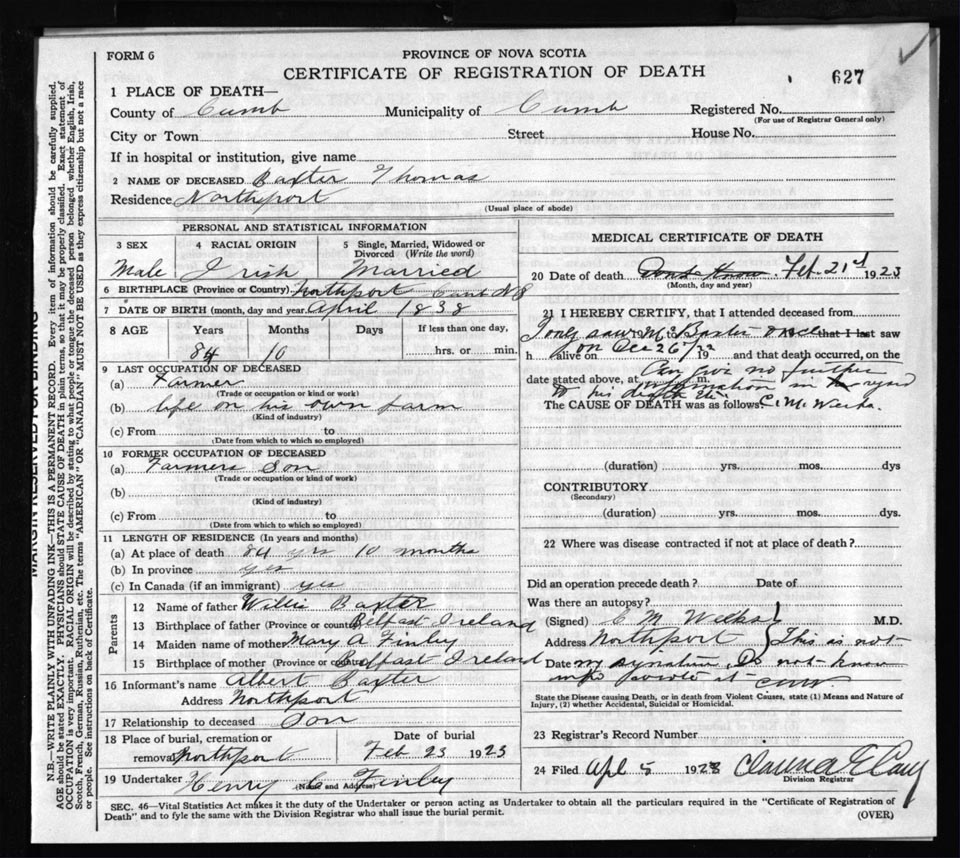 FORM 6
PROVINCE OF NOVA SCOTIA
CERTIFICATE OF REGISTRATION OF DEATH
627
1 PLACE OF DEATH—
County of Cumb Municipality of Cumb Registered No.
(For use of Registrar General only)
City or Town Street House No.
If in hospital or institution, give name
2 NAME OF DECEASED Baxter Thomas
Residence Northport
(Usual place of abode)
PERSONAL AND STATISTICAL INFORMATION
3 SEX 4 RACIAL ORIGIN 5 Single, Married, Widowed or Divorced (Write the word)
Male Irish Married
6 BIRTHPLACE (Province or Country) Northport Cumb N S
7 DATE OF BIRTH (month, day and year April 1838
8 AGE Years Months Days If less than one day,
84 10 hrs. or min.
9 LAST OCCUPATION OF DECEASED
(a) Farmer
(Trade or occupation or kind or work)
(b) life on his own farm
(Kind of industry)
(c) From to
(Date from which to which so employed)
10 FORMER OCCUPATION OF DECEASED
(a) Farmers Son
(Trade or occupation or kind of work)
(b)
(Kind of industry)
(c) From to
(Date from which to which so employed)
11 LENGTH OF RESIDENCE (In years and months)
(a) At place of death 84 yrs 10 months
(b) In province yes
(c) In Canada (if an immigrant) yes
Parents
12 Name of father Willie Baxter
13 Birthplace of father (Province or country) Belfast Ireland
14 Maiden name of mother Mary A Finley
15 Birthplace of mother (Province or country) Belfast Ireland
16 Informant's name Albert Baxter
Address Northport
17 Relationship to deceased Son
18 Place of burial, cremation or removal Northport Date of burial Feb 23 1923
19 Undertaker Henry C Finley
(Name and Address)
MEDICAL CERTIFICATE OF DEATH
20 Date of death Dont Know Feb. 21st 1923
(Month, day and year)
21 I HEREBY CERTIFY, that I attended deceased from
I only saw Mr Baxter once that I last saw
h alive on on Dec 26/22 19 and that death occurred, on the
date stated above, at m. Can give no further
information in regard
to his death etc.
The CAUSE OF DEATH was as follows: C. M. Weeks.
(duration) yrs. mos. dys
CONTRIBUTORY
(Secondary)
(duration) yrs. mos. dys.
22 Where was disease contracted if not at place of death?
Did an operation precede death? Date of
Was there an autopsy?
(Signed) C M Weeks M.D.
Address Northport This is not
Date my signature, Do not know
who wrote it CMW.
State the Disease causing Death, or in death from Violent Causes, state (1) Means and Nature of Injury, (2) whether Accidental, Suicidal or Homicidal.
23 Registrar's Record Number
24 Filed Apl 5 1923
Division Registrar
SEC. 46—Vital Statistics Act makes it the duty of the Undertaker or person acting as Undertaker to obtain all the particulars required in the "Certificate of Registration of Death" and to fyle the same with the Division Registrar who shall issue the burial permit.
(OVER)
MARGIN RESERVED FOR BINDING
N.B.—WRITE PLAINLY WITH UNFADING INK—THIS IS A PERMANENT RECORD. Every item of information should be carefully supplied.
AGE should be stated EXACTLY. PHYSICIANS should STATE CAUSE OF DEATH in plain terms, so that it may be properly classified. Exact statement of
OCCUPATION is very important. RACIAL ORIGIN will be described by stating to what people or tongue the deceased person belonged whether English, Irish,
Scotch, French, German, Russian, Ruthenian, etc. The terms "AMERICAN" OR "CANADIAN" MUST NOT BE USED as they express citizenship but not a race
or people. See instructions on back of Certificate.